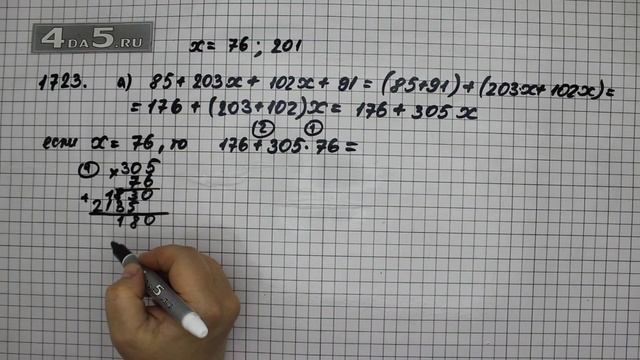 4DA5.RU
x = 76 ; 201
1723. а) 85 + 203x + 102x + 91 = (85+91) + (203x + 102x) =
= 176 + (203+102)x = 176 + 305x
② ①
если x = 76, то 176 + 305 · 76 =
① × 305
76
+ 1830
2135
180
5